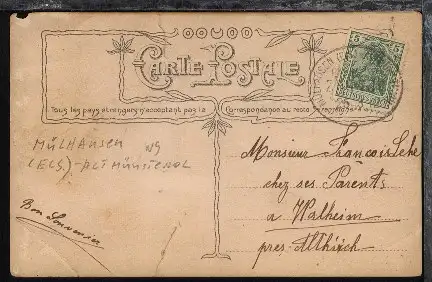 CARTE POSTALE
Tous les pays étrangers n'acceptent pas la Correspondance au recto
5 5
MÜLHAUSEN
(ELS.) - ALTMÜNSTEROL
Bon Souvenir
Monsieur François
chez ses Parents
a Walheim
près Altkirch